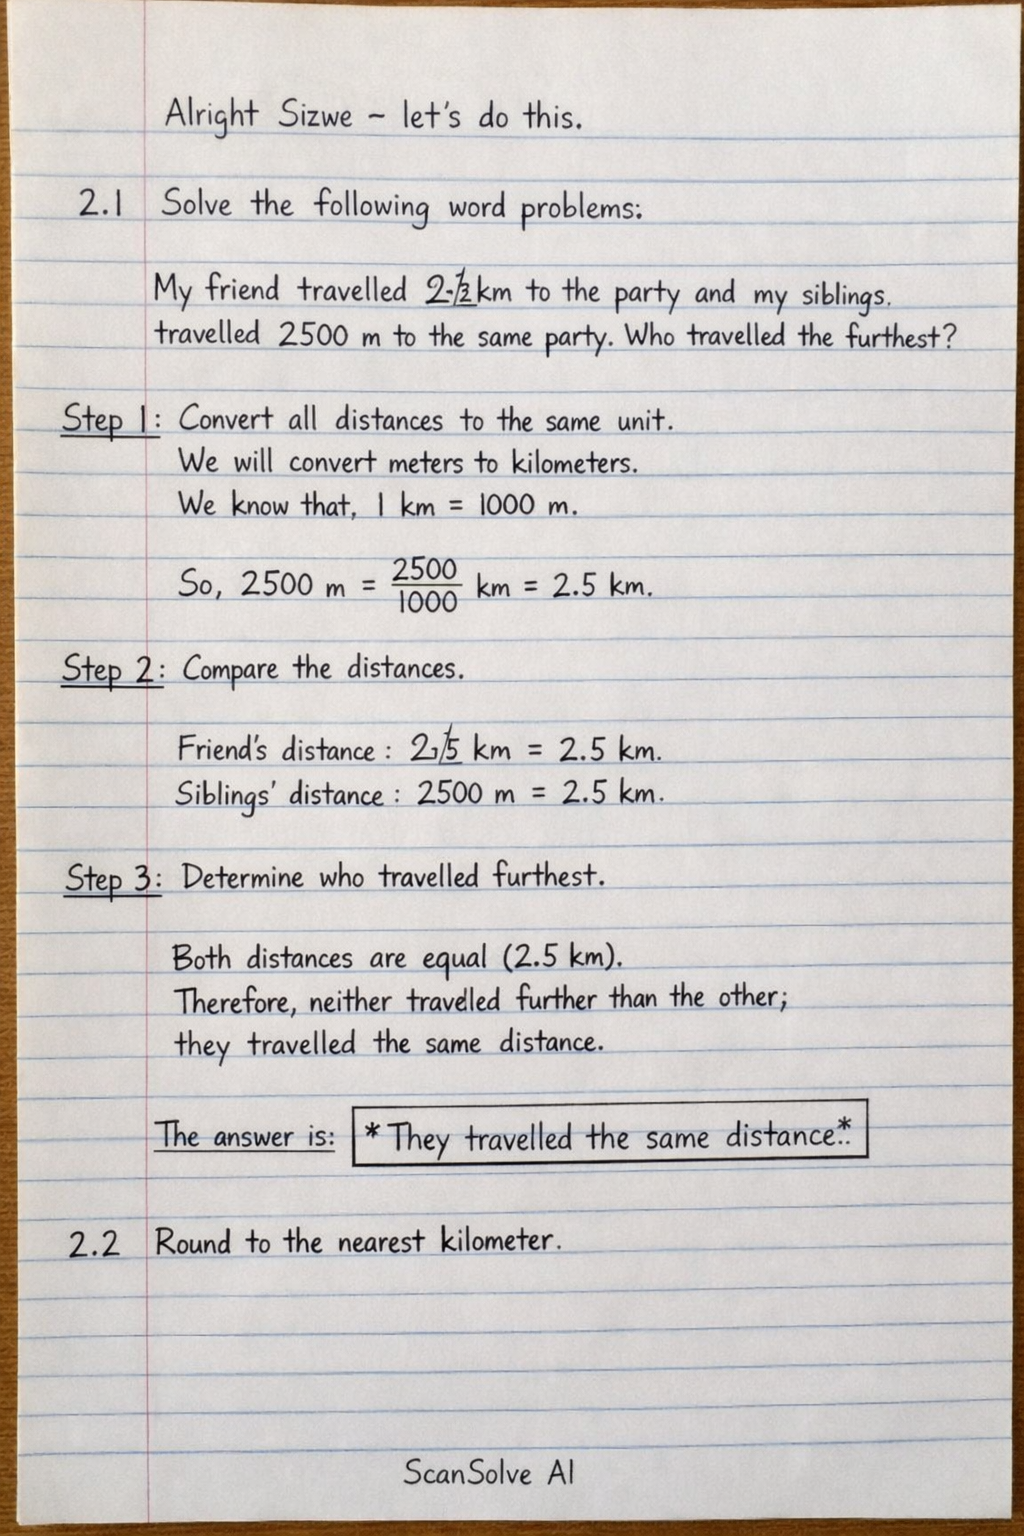 Alright Sizwe ~ let's do this.
2.1 Solve the following word problems:
My friend travelled 2-½ km to the party and my siblings.
travelled 2500 m to the same party. Who travelled the furthest?
Step 1: Convert all distances to the same unit.
We will convert meters to kilometers.
We know that, 1 km = 1000 m.
So, 2500 m = 2500/1000 km = 2.5 km.
Step 2: Compare the distances.
Friend's distance : km = 2.5 km.
Siblings' distance : 2500 m = 2.5 km.
Step 3: Determine who travelled furthest.
Both distances are equal (2.5 km).
Therefore, neither travelled further than the other;
they travelled the same distance.
The answer is: * They travelled the same distance.*.
2.2 Round to the nearest kilometer.
ScanSolve AI